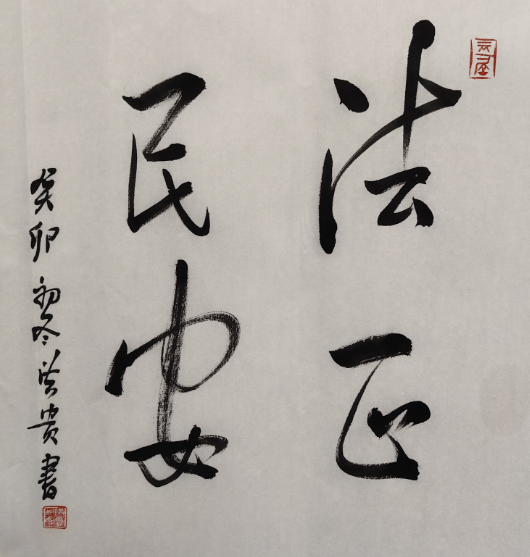 法正
民安
癸卯初冬洪贵書